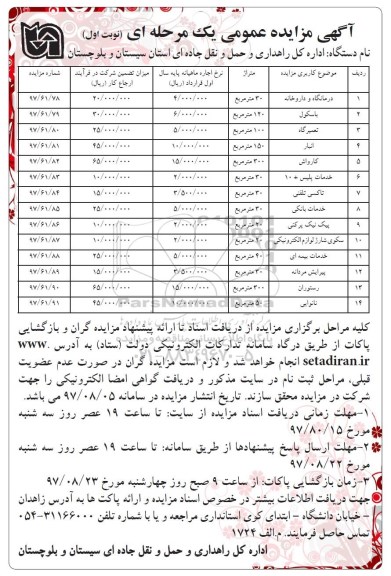 آگهی مزایده عمومی یک مرحله ای (نوبت اول)
نام دستگاه: اداره کل راهداری و حمل و نقل جاده ای استان سیستان و بلوچستان
ردیف موضوع کاربری مزایده متراژ نرخ اجاره ماهیانه پایه سال اول قرارداد (ریال) میزان تضمین شرکت در فرآیند ارجاع کار (ریال) شماره مزایده
۱ درمانگاه و داروخانه ۳۰ مترمربع ۴/۰۰۰/۰۰۰ ۲۰/۰۰۰/۰۰۰ ۹۷/۶۱/۷۸
۲ باسکول ۱۲۰ مترمربع ۶/۰۰۰/۰۰۰ ۳۰/۰۰۰/۰۰۰ ۹۷/۶۱/۷۹
۳ تعمیرگاه ۱۰۰ مترمربع ۵/۰۰۰/۰۰۰ ۲۵/۰۰۰/۰۰۰ ۹۷/۶۱/۸۰
۴ انبار ۱۵۰ مترمربع ۱۰/۰۰۰/۰۰۰ ۴۵/۰۰۰/۰۰۰ ۹۷/۶۱/۸۱
۵ کارواش ۳۰۰ مترمربع ۱۵/۰۰۰/۰۰۰ ۶۵/۰۰۰/۰۰۰ ۹۷/۶۱/۸۲
۶ خدمات پلیس + ۱۰ ۳۰ مترمربع ۲/۰۰۰/۰۰۰ ۱۰/۰۰۰/۰۰۰ ۹۷/۶۱/۸۳
۷ تاکسی تلفنی ۳۰ مترمربع ۳/۵۰۰/۰۰۰ ۱۵/۰۰۰/۰۰۰ ۹۷/۶۱/۸۴
۸ خدمات بانکی ۳۰ مترمربع ۵/۰۰۰/۰۰۰ ۲۵/۰۰۰/۰۰۰ ۹۷/۶۱/۸۵
۹ پیک نیک پرکنی مترمربع ۲/۰۰۰/۰۰۰ ۱۰/۰۰۰/۰۰۰ ۹۷/۶۱/۸۶
۱۰ سکوی شارژ لوازم الکترونیکی ۲۰ مترمربع ۲/۰۰۰/۰۰۰ ۱۰/۰۰۰/۰۰۰ ۹۷/۶۱/۸۷
۱۱ خدمات بیمه ای ۴۰ مترمربع ۵/۰۰۰/۰۰۰ ۲۵/۰۰۰/۰۰۰ ۹۷/۶۱/۸۸
۱۲ پیرایش مردانه ۳۰ مترمربع ۳/۵۰۰/۰۰۰ ۱۵/۰۰۰/۰۰۰ ۹۷/۶۱/۸۹
۱۳ رستوران ۳۰۰ مترمربع ۱۵/۰۰۰/۰۰۰ ۶۵/۰۰۰/۰۰۰ ۹۷/۶۱/۹۰
۱۴ نانوایی ۵۰ مترمربع ۱۰/۰۰۰/۰۰۰ ۴۵/۰۰۰/۰۰۰ ۹۷/۶۱/۹۱
کلیه مراحل برگزاری مزایده از دریافت اسناد تا ارائه پیشنهاد مزایده گران و بازگشایی
پاکات از طریق درگاه سامانه تدارکات الکترونیکی دولت (ستاد) به آدرس www.
setadiran.ir انجام خواهد شد و لازم است مزایده گران در صورت عدم عضویت
قبلی، مراحل ثبت نام در سایت مذکور و دریافت گواهی امضا الکترونیکی را جهت
شرکت در مزایده محقق سازند. تاریخ انتشار مزایده در سامانه ۹۷/۰۸/۰۵ می باشد.
۱-مهلت زمانی دریافت اسناد مزایده از سایت: تا ساعت ۱۹ عصر روز سه شنبه
مورخ ۹۷/۸۰/۱۵
۲-مهلت ارسال پاسخ پیشنهادها از طریق سامانه: تا ساعت ۱۹ عصر روز سه شنبه
مورخ ۹۷/۰۸/۲۲
۳-زمان بازگشایی پاکات: از ساعت ۹ صبح روز چهارشنبه مورخ ۹۷/۰۸/۲۳
جهت دریافت اطلاعات بیشتر در خصوص اسناد مزایده و ارائه پاکت ها به آدرس زاهدان
- خیابان دانشگاه - ابتدای کوی استانداری مراجعه و یا با شماره تلفن ۳۱۱۶۶۰۰۰-۰۵۴
تماس حاصل فرمایند. م.الف ۱۷۲۴
اداره کل راهداری و حمل و نقل جاده ای سیستان و بلوچستان